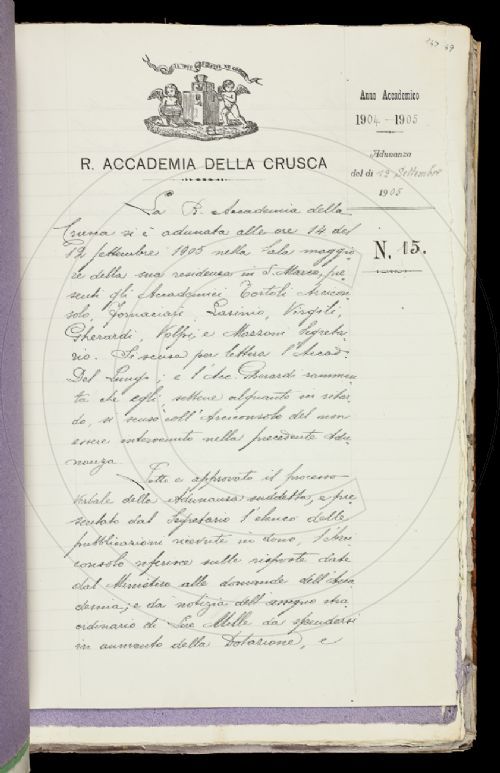 Anno Accademico
1904 - 1905
Adunanza
del dì 12 Settembre
1905
N. 15.
R. ACCADEMIA DELLA CRUSCA
La R. Accademia della
Crusca si è adunata alle ore 14 del
12 settembre 1905 nella Sala maggio
re della sua residenza in S. Marco, pre
senti gli Accademici Tortoli Arcicon
solo, Fornaciari, Lasinio, Virgili,
Gherardi, Volpi, e Mazzoni Segreta
rio. Si scusa per lettera l'Accad.
Del Lungo; e l'Acc. Gherardi rammen
ta che egli, sebbene alquanto in ritar
do, si scusò coll'Arciconsolo del non
essere intervenuto nella precedente Adu
nanza.
Letto e approvato il processo
verbale della Adunanza suddetta, e pre
sentato dal Segretario l'elenco delle
pubblicazioni ricevute in dono, l'Arci
consolo riferisce sulle risposte date
dal Ministero alle domande dell'Acca
demia; e dà notizia dell'assegno stra
ordinario di Lire Mille da spendersi
in aumento della Dotazione, e